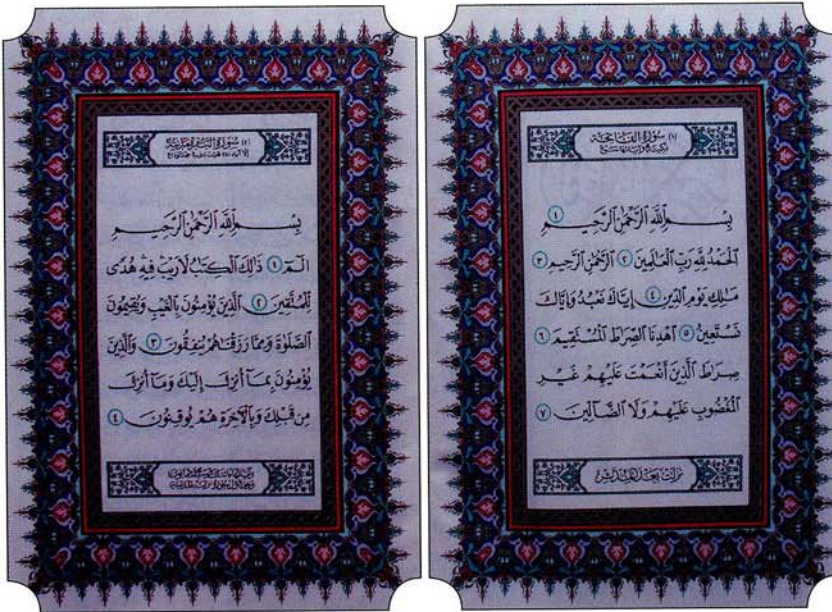 (١) سُورَة الفَاتِحَة
مكية وآياتها سبع
بِسْمِ ٱللَّهِ ٱلرَّحْمَٰنِ ٱلرَّحِيمِ ١
ٱلْحَمْدُ لِلَّهِ رَبِّ ٱلْعَٰلَمِينَ ٢ ٱلرَّحْمَٰنِ ٱلرَّحِيمِ ٣
مَٰلِكِ يَوْمِ ٱلدِّينِ ٤ إِيَّاكَ نَعْبُدُ وَإِيَّاكَ
نَسْتَعِينُ ٥ ٱهْدِنَا ٱلصِّرَٰطَ ٱلْمُسْتَقِيمَ ٦
صِرَٰطَ ٱلَّذِينَ أَنْعَمْتَ عَلَيْهِمْ غَيْرِ
ٱلْمَغْضُوبِ عَلَيْهِمْ وَلَا ٱلضَّآلِّينَ ٧
نزلت بعد المدثر
(٢) سُورَة البَقَرَة مَدَنيَّة
بِسْمِ ٱللَّهِ ٱلرَّحْمَٰنِ ٱلرَّحِيمِ
الٓمٓ ١ ذَٰلِكَ ٱلْكِتَٰبُ لَا رَيْبَ فِيهِ هُدًى
لِّلْمُتَّقِينَ ٢ ٱلَّذِينَ يُؤْمِنُونَ بِٱلْغَيْبِ وَيُقِيمُونَ
ٱلصَّلَوٰةَ وَمِمَّا رَزَقْنَٰهُمْ يُنفِقُونَ ٣ وَٱلَّذِينَ
يُؤْمِنُونَ بِمَآ أُنزِلَ إِلَيْكَ وَمَآ أُنزِلَ
مِن قَبْلِكَ وَبِٱلْءَاخِرَةِ هُمْ يُوقِنُونَ ٤